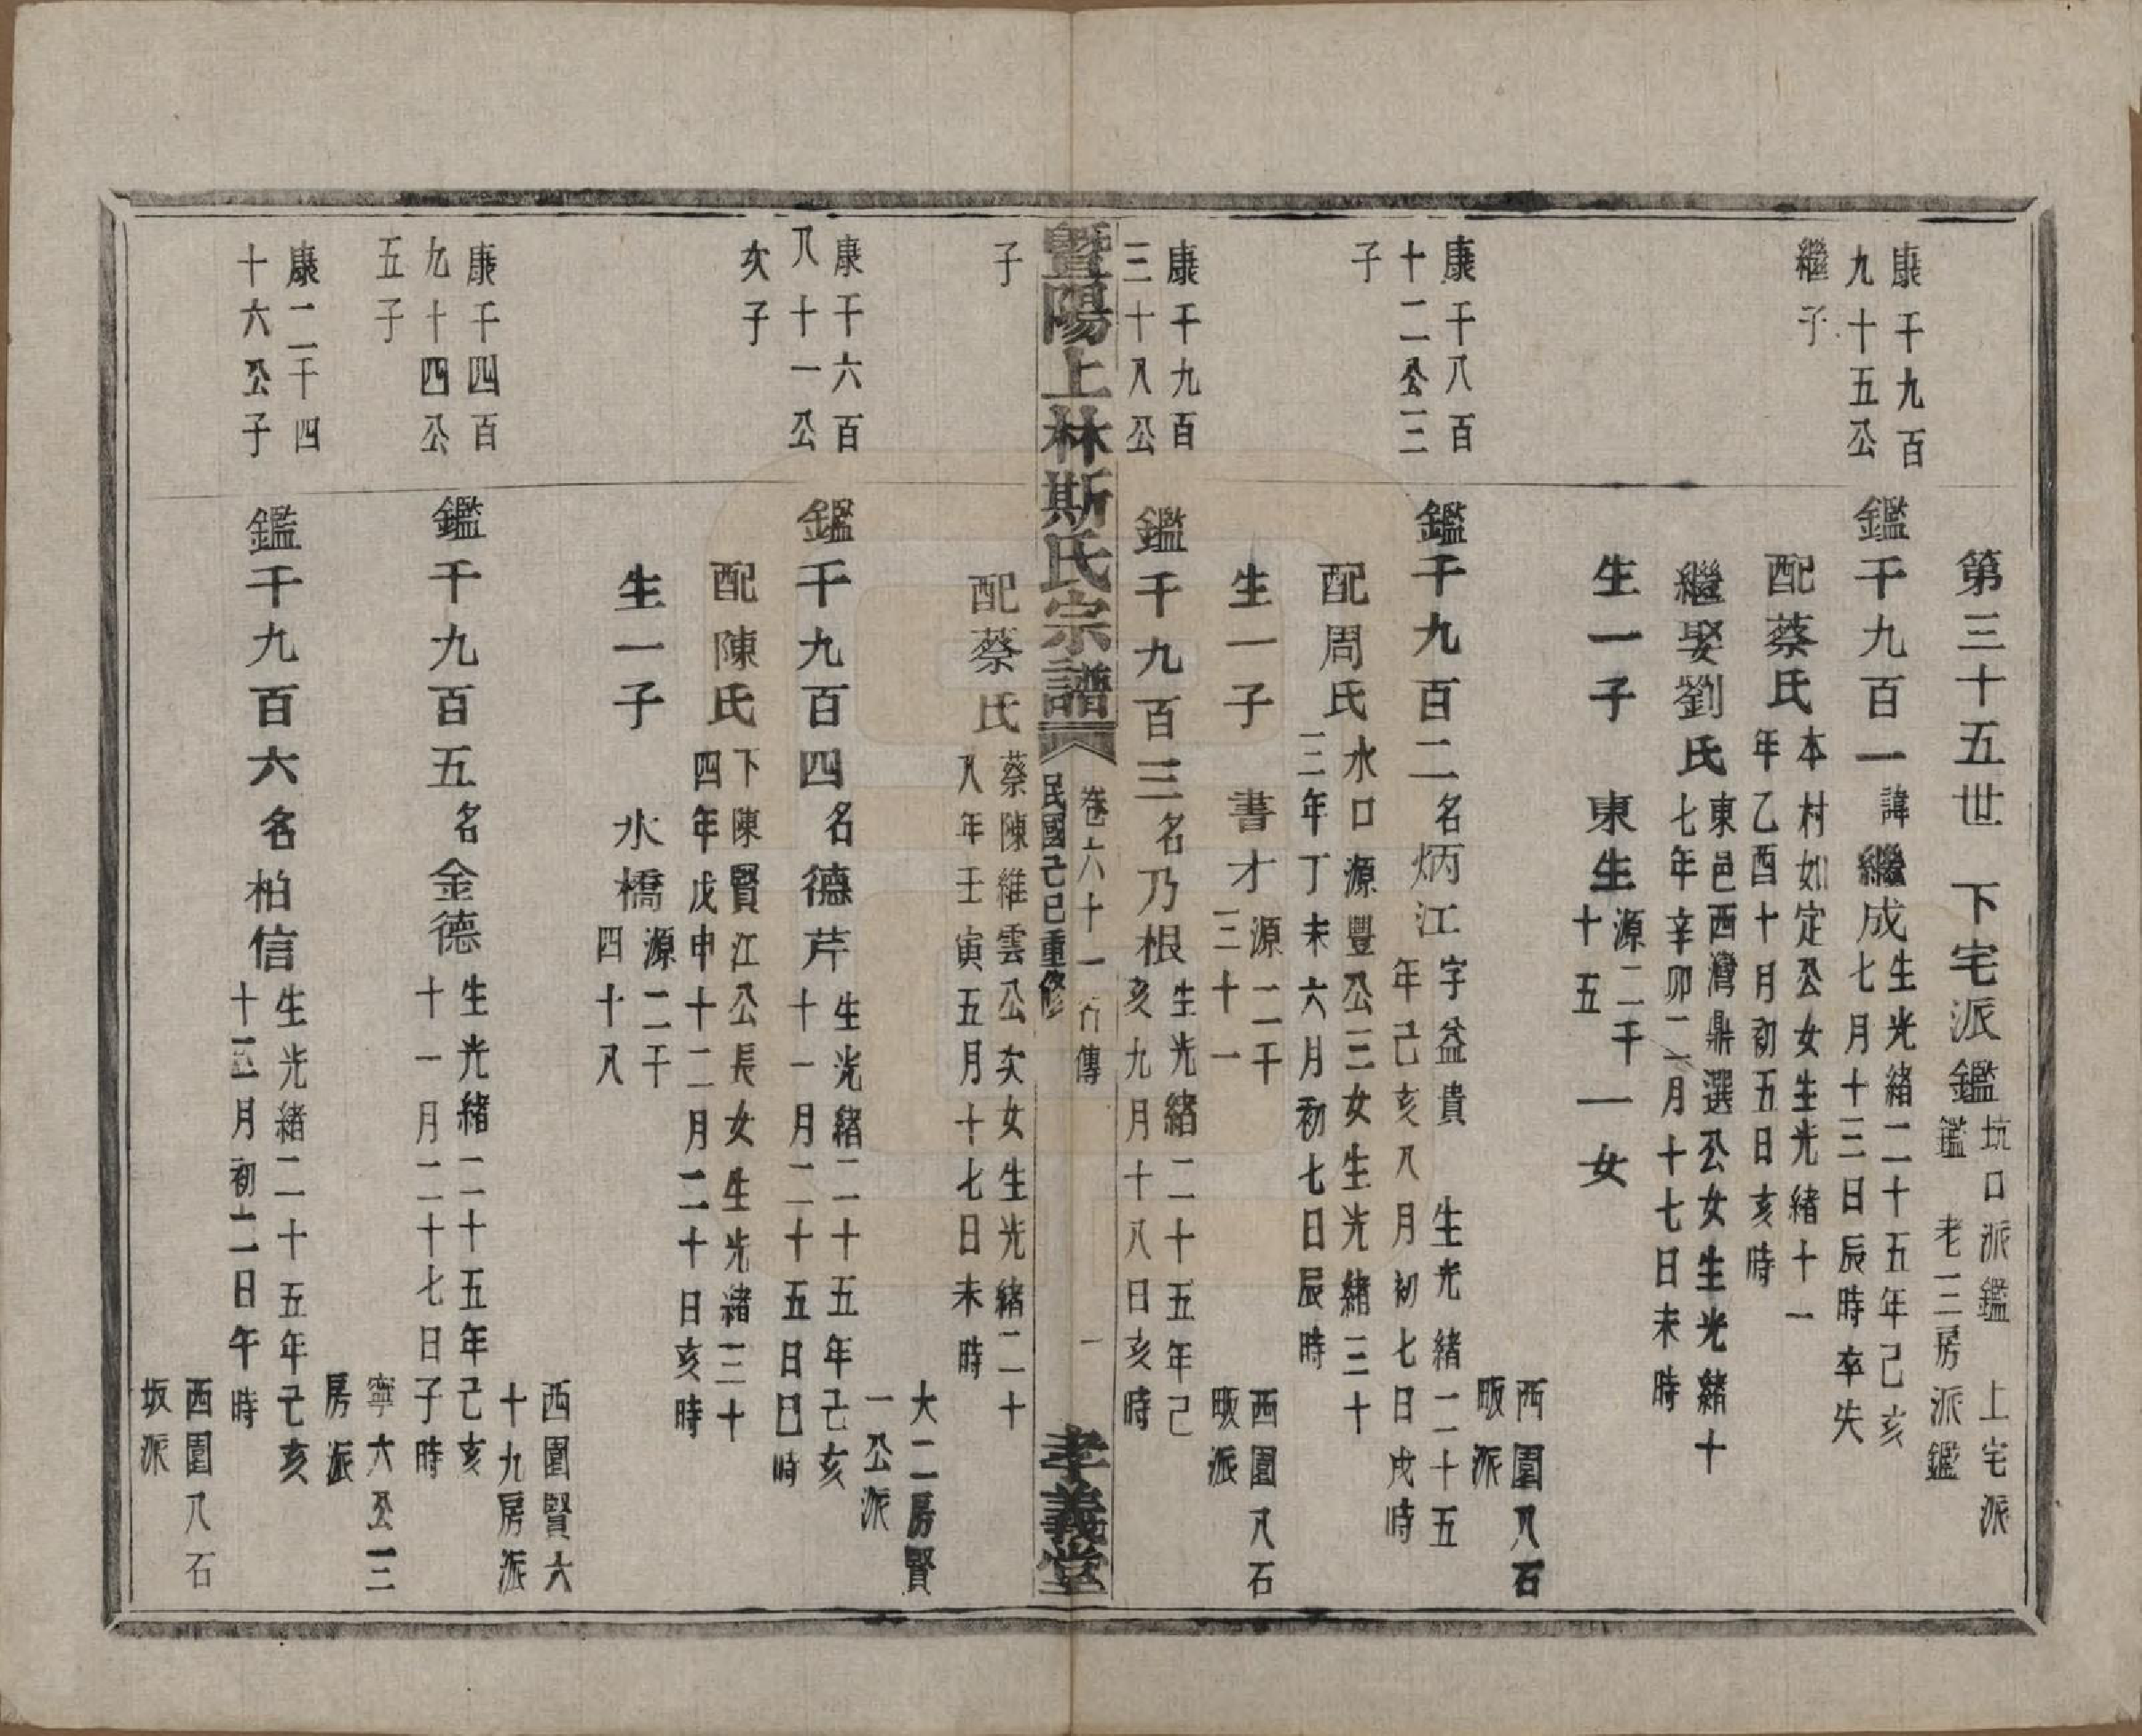 第三十五世　下宅派鑑
坑口派鑑　上宅派
鑑　老三房派鑑
康千九百
九十五公
繼子
鑑千九百一諱繼成
生光緒二十五年己亥
七月十三日辰時卒失
配蔡氏
本村如定公女生光緒十一
年乙酉十月初五日亥時
繼娶劉氏
東邑西灣鼎選公女生光緒十
七年辛卯二月十七日未時
生一子　東生
源二千
十五
一女
西圍八石
畈派
康千八百
十二公三
子
鑑千九百二名炳江字益貴
生光緒二十五
年己亥八月初七日戌時
配周氏
水口源豐公三女生光緒三十
三年丁未六月初七日辰時
生一子　書才
源二千
三十一
西圍八石
畈派
康千九百
三十八公
子
鑑千九百三名乃根
生光緒二十五年己
亥九月十八日亥時
暨陽上林斯氏宗譜
卷六十一　行傳　一
民國己巳重修
孝義堂
配蔡氏
蔡陳維雲公次女生光緒二十
八年壬寅五月十七日未時
大二房賢
一公派
康千六百
八十一公
次子
鑑千九百四名德芹
生光緒二十五年己亥
十一月二十五日巳時
配陳氏
下陳賢江公長女生光緒三十
四年戊申十二月二十日亥時
生一子　水橋
源二千
四十八
西圍賢六
十九房派
康千四百
九十四公
五子
鑑千九百五名金德
生光緒二十五年己亥
十一月二十七日子時
寧六公三
房派
康二千四
十六公子
鑑千九百六名柏信
生光緒二十五年己亥
十二月初二日午時
西圍八石
坂派